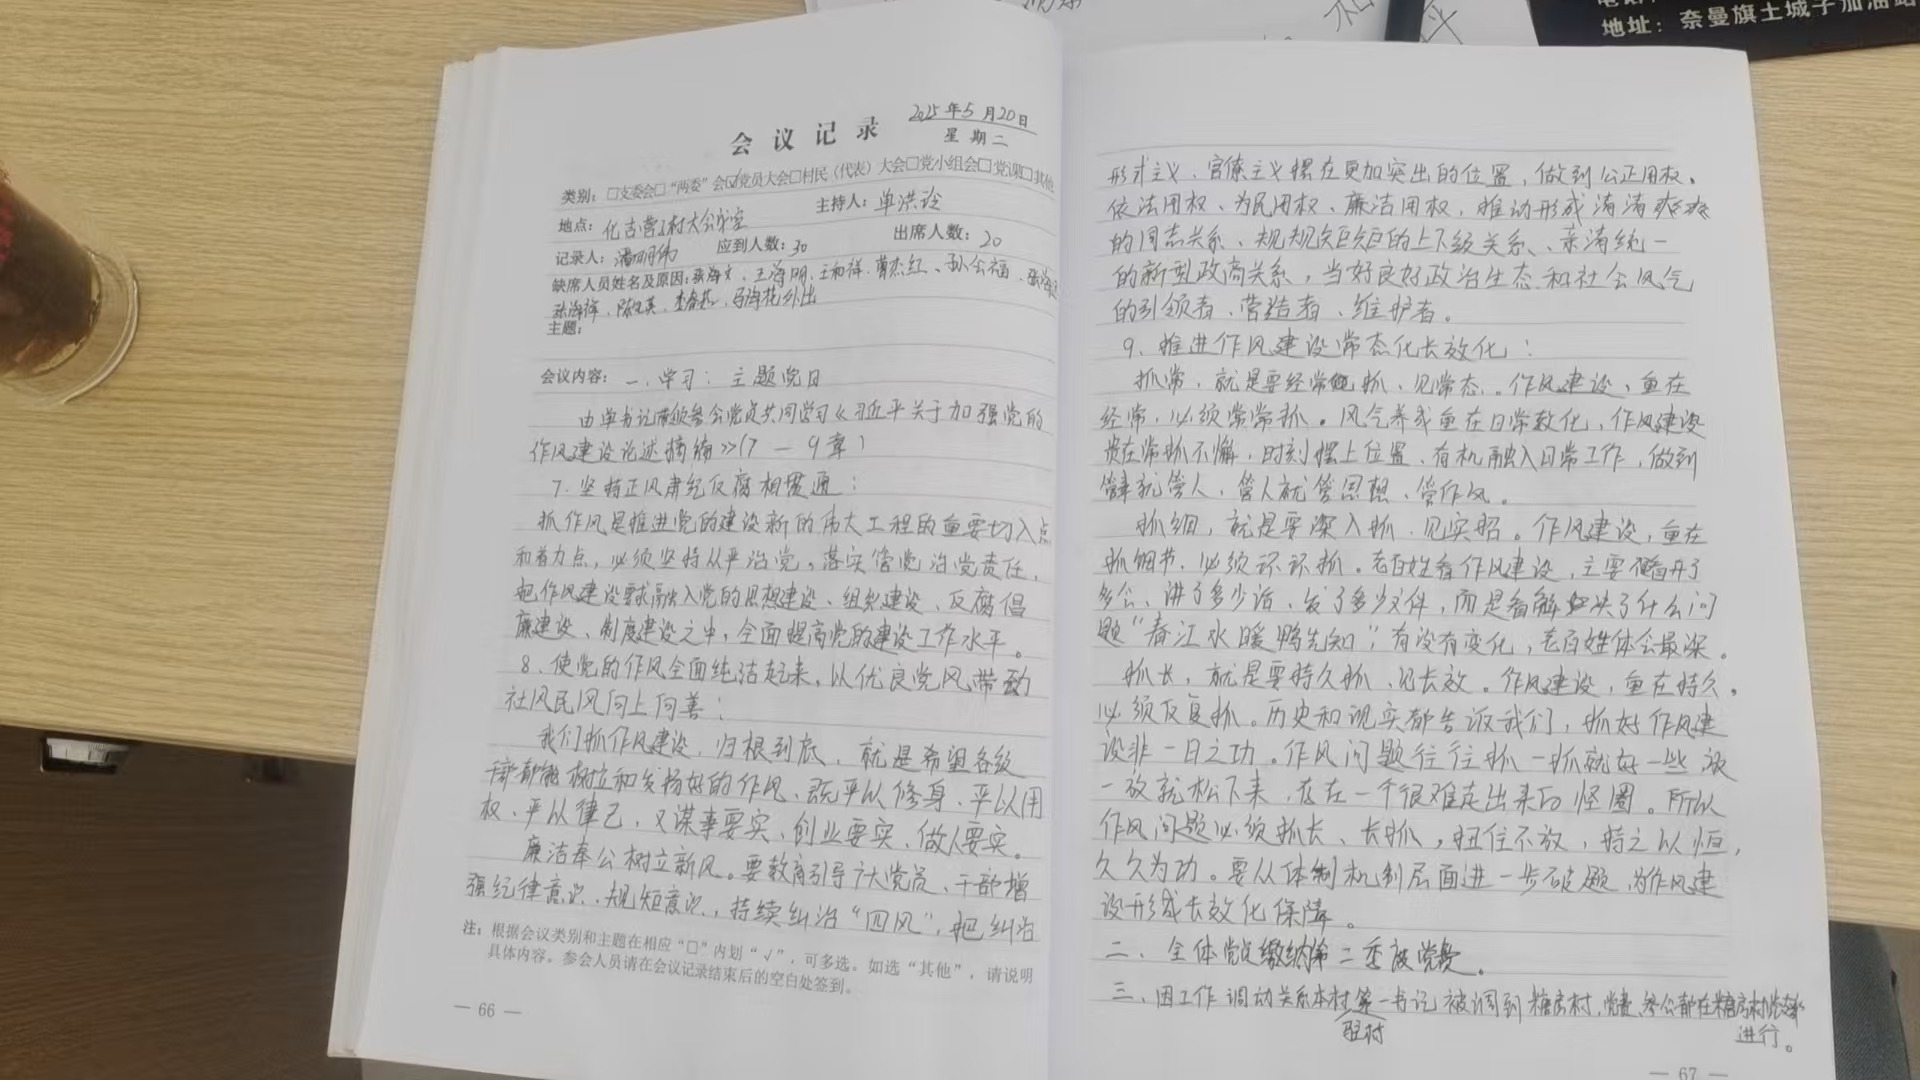 地址：奈曼旗土城子加油站
2025年5月20日
会议记录
星期二
类别：□支委会□“两委”会☑党员大会□村民（代表）大会□党小组会□党课□其他
地点：化吉营子村大会议室
主持人：单洪玲
记录人：潘明伟
应到人数：30
出席人数：20
缺席人员姓名及原因：张海文、王海明、王和祥、曹杰红、孙公福、张海
张海祥、陈凤英、李春艺、马海花外出
主题：
会议内容：一、学习：主题党日
由单书记带领参会党员共同学习《习近平关于加强党的
作风建设论述摘编》（7—9章）
7、坚持正风肃纪反腐相贯通：
抓作风是推进党的建设新的伟大工程的重要切入点
和着力点，必须坚持从严治党。落实管党治党责任，
把作风建设要求融入党的思想建设、组织建设、反腐倡
廉建设、制度建设之中，全面提高党的建设工作水平。
8、使党的作风全面纯洁起来，以优良党风带动
社风民风向上向善：
我们抓作风建设，归根到底，就是希望各级
干部都能树立和发扬好的作风、既严以修身、严以用
权、严以律己，又谋事要实、创业要实、做人要实。
廉洁奉公树立新风。要教育引导广大党员、干部增
强纪律意识、规矩意识，持续纠治“四风”，把纠治
注：根据会议类别和主题在相应“□”内划“√”，可多选。如选“其他”，请说明
具体内容。参会人员请在会议记录结束后的空白处签到。
— 66 —
形式主义、官僚主义摆在更加突出的位置，做到公正用权、
依法用权、为民用权、廉洁用权，推动形成清清爽爽
的同志关系、规规矩矩的上下级关系、亲清统一
的新型政商关系，当好良好政治生态和社会风气
的引领者、营造者、维护者。
9、推进作风建设常态化长效化：
抓常，就是要经常抓、见常态。作风建设、重在
经常，必须常常抓。风气养成重在日常教化，作风建设
贵在常抓不懈，时刻摆上位置、有机融入日常工作，做到
管事就管人，管人就管思想、管作风。
抓细，就是要深入抓、见实招。作风建设，重在
抓细节，必须环环抓。老百姓看作风建设，主要不看开了
多会、讲了多少话、发了多少文件，而是看解决了什么问
题“春江水暖鸭先知”，有没有变化，老百姓体会最深。
抓长，就是要持久抓、见长效。作风建设，重在持久，
必须反复抓。历史和现实都告诉我们，抓好作风建
设非一日之功。作风问题往往抓一抓就好一些 放
一放就松下来，存在一个很难走出来的怪圈。所以
作风问题必须抓长、长抓，扭住不放，持之以恒，
久久为功。要从体制机制层面进一步破题，为作风建
设形成长效化保障。
二、全体党员缴纳第二季度党费。
三、因工作调动关系本村驻村第一书记被调到糖房村，党费、参会都在糖房村党支部
进行。
— 67 —